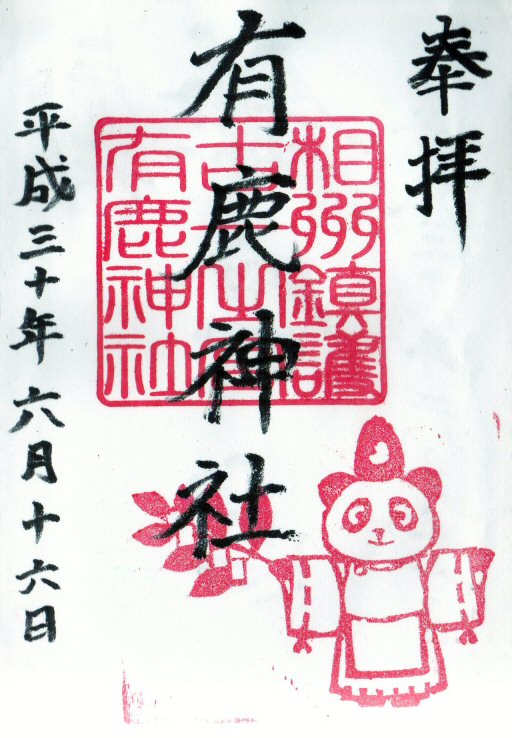 奉拝
相州鎮護
有鹿神社
有鹿神社
平成三十年六月十六日